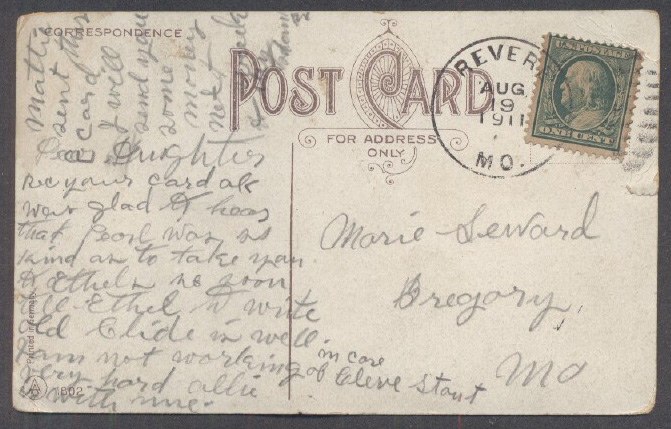 CORRESPONDENCE
POST CARD
FOR ADDRESS
ONLY
REVERE
AUG
19
1911
MO.
U.S. POSTAGE
ONE CENT
Mattie
sent this
card
I will
send you
some
money
next week
Dear Daughter
Rec your card all
was glad to hear
that Pearl was so
kind as to take you
to Ethels so soon
tell Ethel to write
old Clide is well.
I am not working
very hard allie
with me.
Marie Seward
Gregory,
Mo
in care
of Cleve Stout
Printed in Germany.
1802